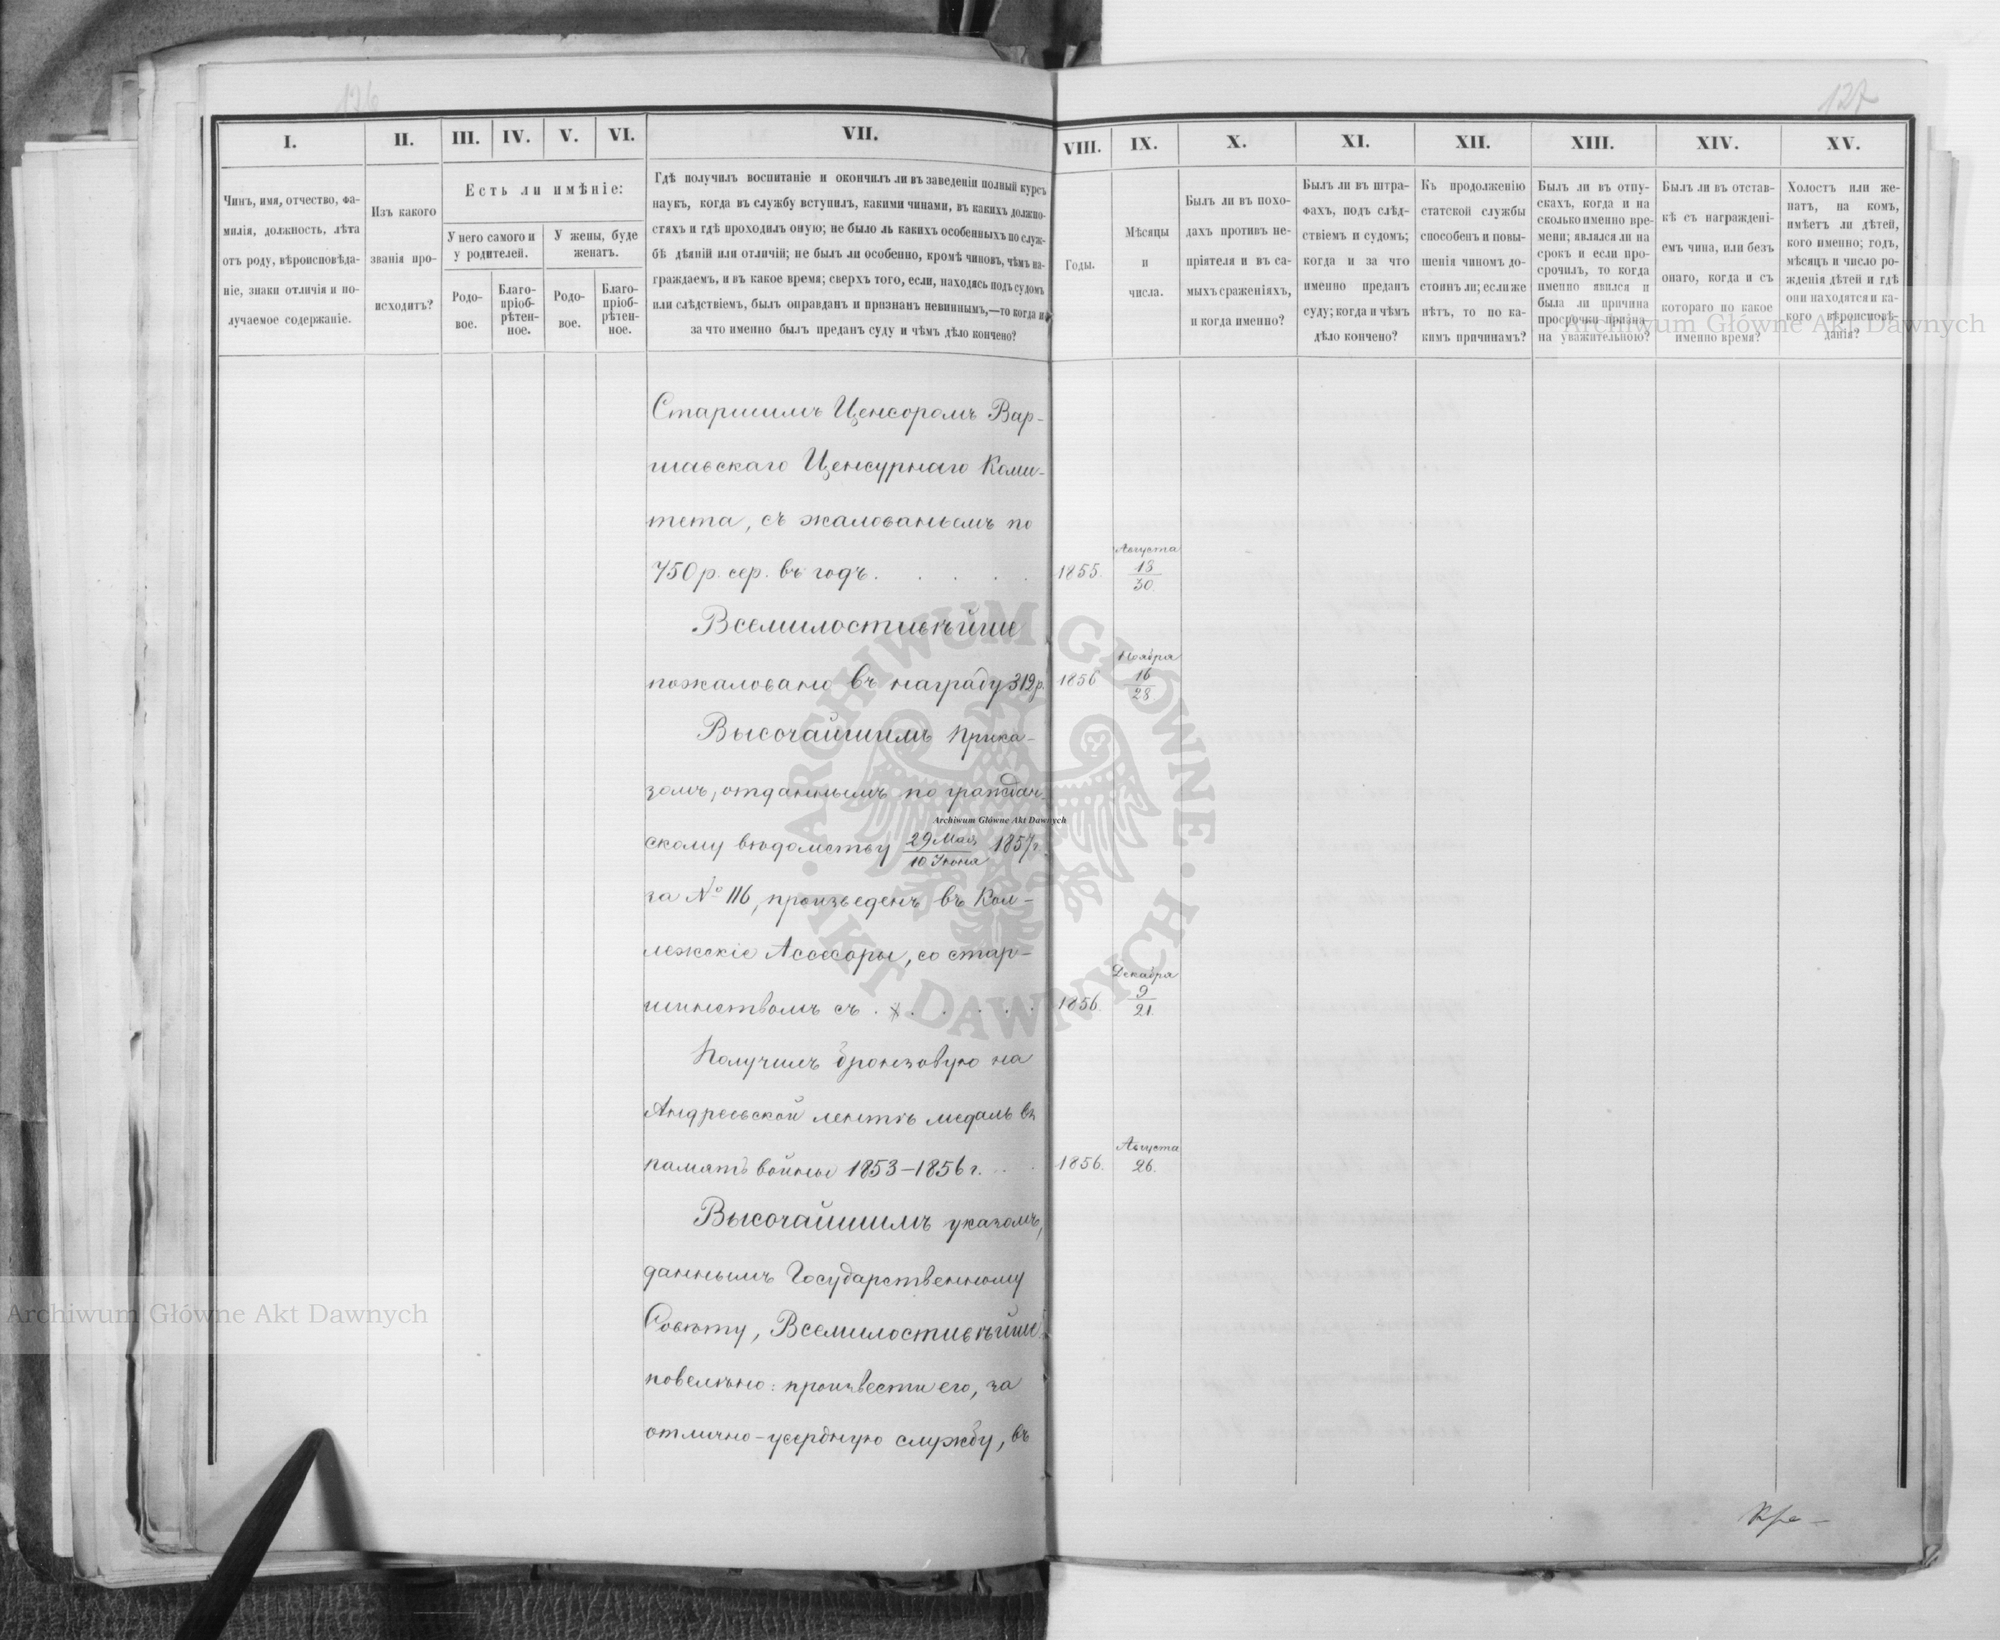 126
127
I.
II.
III.
IV.
V.
VI.
VII.
VIII.
IX.
X.
XI.
XII.
XIII.
XIV.
XV.
Чинъ, имя, отчество, фа-
милія, должность, лѣта
отъ роду, вѣроисповѣда-
ніе, знаки отличія и по-
лучаемое содержаніе.
Изъ какого
званія про-
исходитъ?
Есть ли имѣніе:
У него самого и
у родителей.
У жены, буде
женатъ.
Родо-
вое.
Благо-
пріоб-
рѣтен-
ное.
Родо-
вое.
Благо-
пріоб-
рѣтен-
ное.
Гдѣ получилъ воспитаніе и окончилъ ли въ заведеніи полный курсъ
наукъ, когда въ службу вступилъ, какими чинами, въ какихъ должно-
стяхъ и гдѣ проходилъ оную; не было ль какихъ особенныхъ по служ-
бѣ дѣяній или отличій; не былъ ли особенно, кромѣ чиновъ, чѣмъ на-
граждаемъ, и въ какое время; сверхъ того, если, находясь подъ судомъ
или слѣдствіемъ, былъ оправданъ и признанъ невиннымъ,—то когда и
за что именно былъ преданъ суду и чѣмъ дѣло кончено?
Годы.
Мѣсяцы
и
числа.
Былъ ли въ похо-
дахъ противъ не-
пріятеля и въ са-
мыхъ сраженіяхъ,
и когда именно?
Былъ ли въ штра-
фахъ, подъ слѣд-
ствіемъ и судомъ;
когда и за что
именно преданъ
суду; когда и чѣмъ
дѣло кончено?
Къ продолженію
статской службы
способенъ и повы-
шенія чиномъ до-
стоинъ ли; если же
нѣтъ, то по ка-
кимъ причинамъ?
Былъ ли въ отпу-
скахъ, когда и на
сколько именно вре-
мени; являлся ли на
срокъ и если про-
срочилъ, то когда
именно явился и
была ли причина
просрочки призна-
на уважительною?
Былъ ли въ отстав-
кѣ съ награждені-
емъ чина, или безъ
онаго, когда и съ
котораго по какое
именно время?
Холостъ или же-
натъ, на комъ,
имѣетъ ли дѣтей,
кого именно; годъ,
мѣсяцъ и число ро-
жденія дѣтей и гдѣ
они находятся и ка-
кого вѣроисповѣ-
данія?
Старшимъ Ценсоромъ Вар-
шавскаго Ценсурнаго Коми-
тета, съ жалованьемъ по
750 р. сер. въ годъ. . . . .
1855.
Августа
13
30.
Всемилостивѣйше
пожаловано въ награду 319 р.
1856
Ноября
16
28.
Высочайшимъ прика-
зомъ, отданнымъ по граждан-
скому вѣдомству 29 Мая 1857 г.
10 Іюня
за № 116, произведенъ въ Кол-
лежскіе Асессоры, со стар-
шинствомъ съ . . . . . .
1856.
Декабря
9
21.
Получилъ бронзовую на
Андреевской лентѣ медаль въ
память войны 1853–1856 г. . .
1856.
Августа
26.
Высочайшимъ указомъ,
даннымъ Государственному
Совѣту, Всемилостивѣйше
повелѣно: произвести его, за
отлично-усердную службу, въ
Archiwum Główne Akt Dawnych
Archiwum Główne Akt Dawnych
Archiwum Główne Akt Dawnych
ARCHIWUM GŁÓWNE · AKT DAWNYCH ·